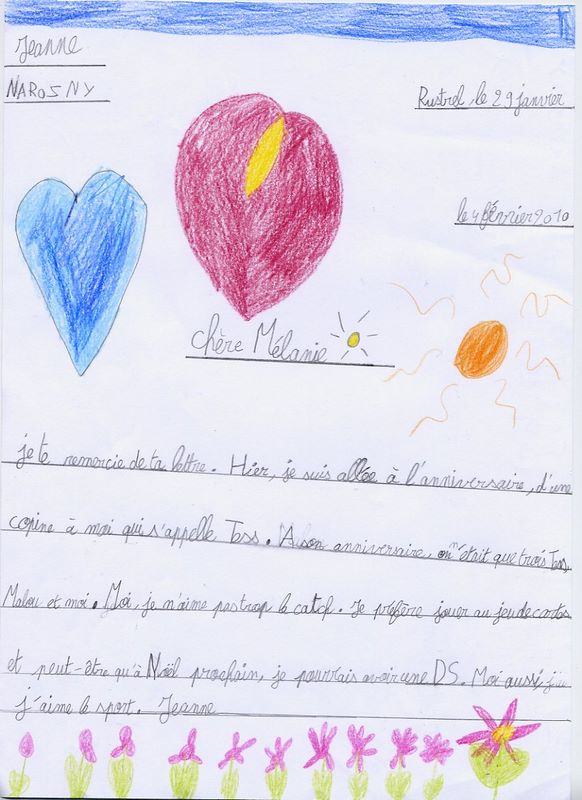 Jeanne
NAROSNY
Rustrel, le 29 janvier
le 4 février 2010
chère Mélanie
je te remercie de ta lettre. Hier, je suis allée à l'anniversaire, d'une
copine à moi qui s'appelle Tess. A son anniversaire, on n'était que trois Tess,
Malou et moi. Moi, je n'aime pas trop le catch. Je préfère jouer au jeu de cartes
et peut-être qu'à Noël prochain, je pourrais avoir une DS. Moi aussi,
j'aime le sport. Jeanne